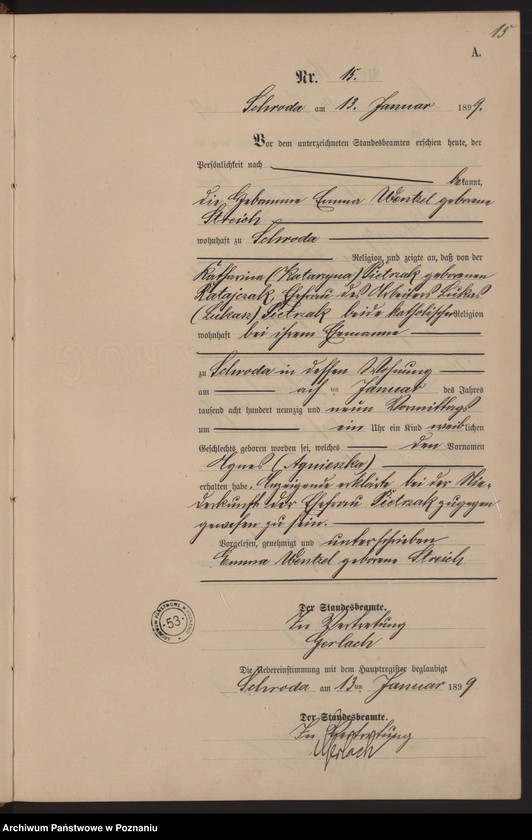 15
A.
Nr. 15.
Schroda am 13. Januar 1899.
Vor dem unterzeichneten Standesbeamten erschien heute, der
Persönlichkeit nach
bekannt,
die Hebamme Emma Wentzel geborene
Streich
wohnhaft zu Schroda
Religion, und zeigte an, daß von der
Katharina (Katarzyna) Pietrzak geborenen
Ratajczak, Ehefrau des Arbeiters Lukas
(Lukasz) Pietrzak beide katholischer Religion
wohnhaft bei ihrem Ehemanne
zu Schroda in dessen Wohnung
am acht ten Januar des Jahres
tausend acht hundert neunzig und neun Vormittags
um ein Uhr ein Kind weiblichen
Geschlechts geboren worden sei, welches den Vornamen
Agnes (Agnieszka)
erhalten habe. Anzeigende erklärte bei der Nie-
derkunft der Ehefrau Pietrzak zugegen
gewesen zu sein.
Vorgelesen, genehmigt und unterschrieben
Emma Wentzel geborene Streich
Der Standesbeamte.
In Vertretung
Gerlach
Die Uebereinstimmung mit dem Hauptregister beglaubigt
Schroda am 13ten Januar 1899
Der Standesbeamte.
In Vertretung
Gerlach
ARCHIWUM PAŃSTWOWE W POZNANIU
53
Archiwum Państwowe w Poznaniu